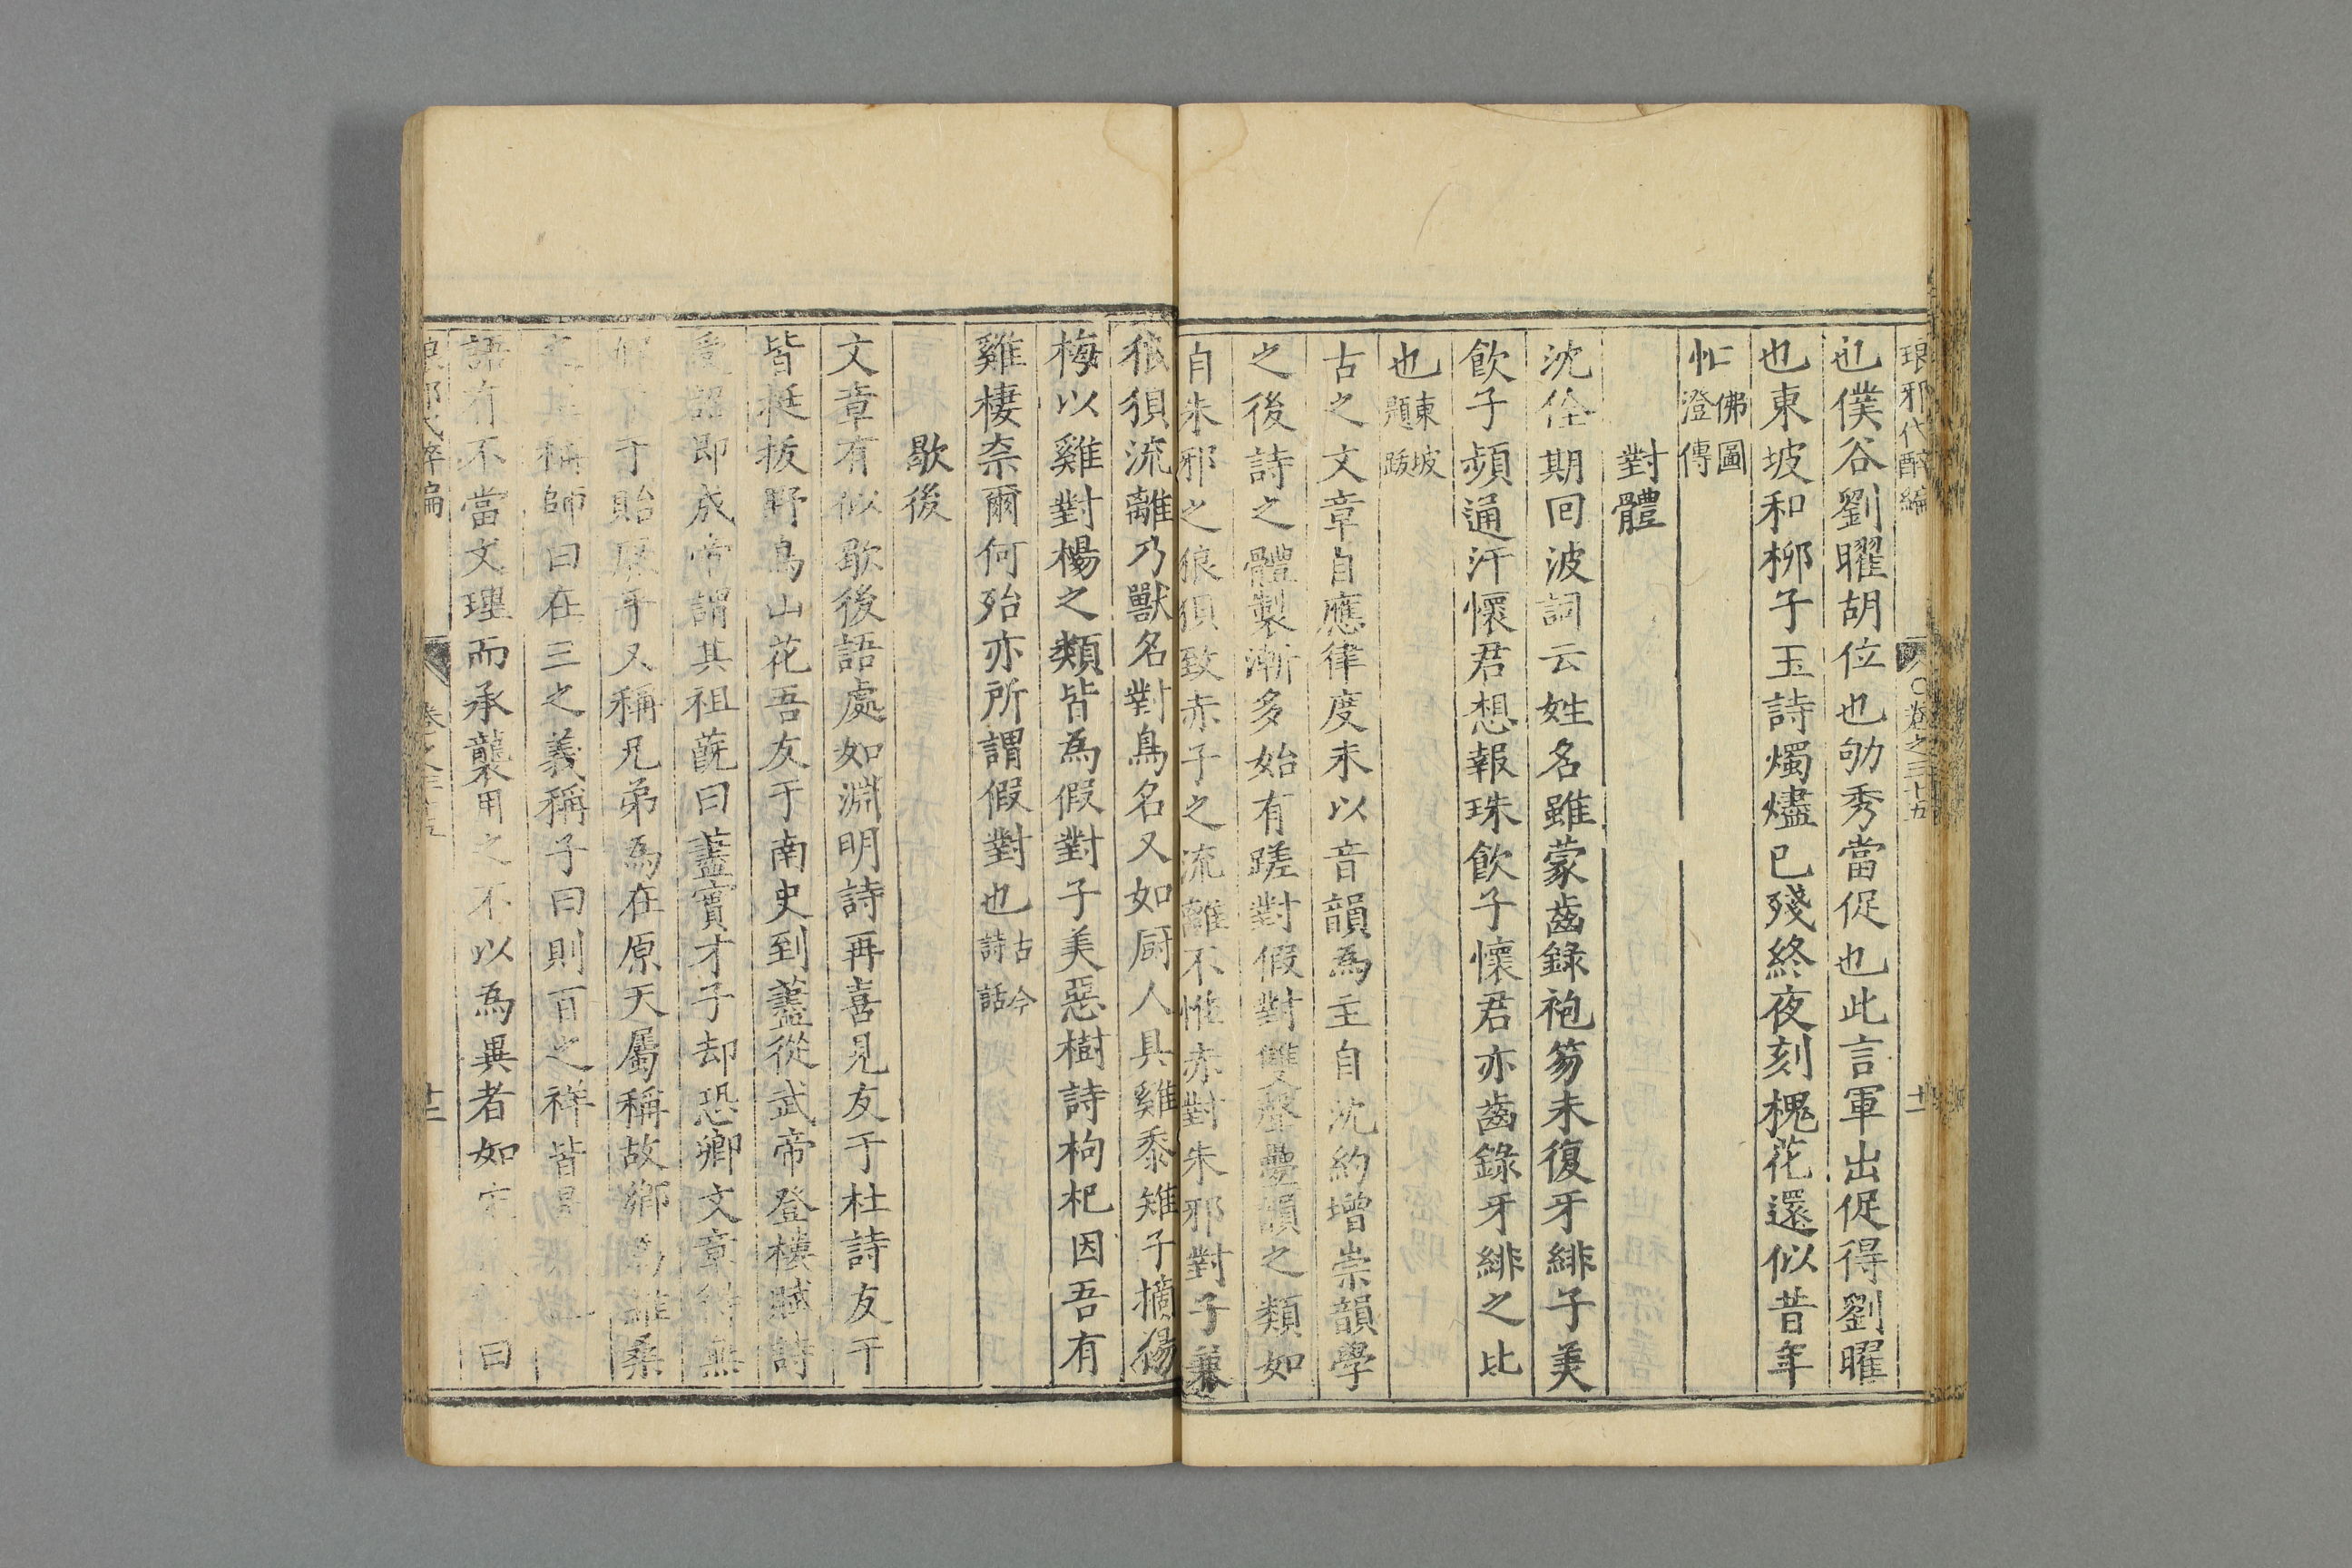 琅邪代醉編 卷之三十五 十一
也僕谷劉曜胡位也劬秀當促也此言軍出促得劉曜
也東坡和柳子玉詩燭燼已殘終夜刻槐花還似昔年
忙佛圖澄傳
對體
沈佺期回波詞云姓名雖蒙齒錄袍笏未復牙緋子美
飲子頻通汗懷君想報珠飲子懷君亦齒錄牙緋之比
也東坡題跋
古之文章自應律度未以音韻為主自沈約增崇韻學
之後詩之體製漸多始有蹉對假對雙聲疊韻之類如
自朱邪之狼狽致赤子之流離不惟赤對朱邪對子兼
狼狽流離乃獸名對鳥名又如厨人具雞黍雉子摘楊
梅以雞對楊之類皆為假對子美惡樹詩枸杞因吾有
雞棲奈爾何殆亦所謂假對也古今詩話
歇後
文章有似歇後語處如淵明詩再喜見友于杜詩友于
皆挺拔野鳥山花吾友于南史到藎從武帝登樓賦詩
受詔即成帝謂其祖蓋曰藎實才子却恐卿文章得無
于貽厥乎又稱兄弟為在原天屬稱故鄉為維桑
稱師曰在三之義稱子曰則百之祥皆
語有不當文理而承襲用之不以為異者如 曰
琅邪代醉編 卷之三十五 十二